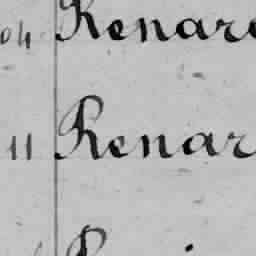 04 Renard
11 Renar